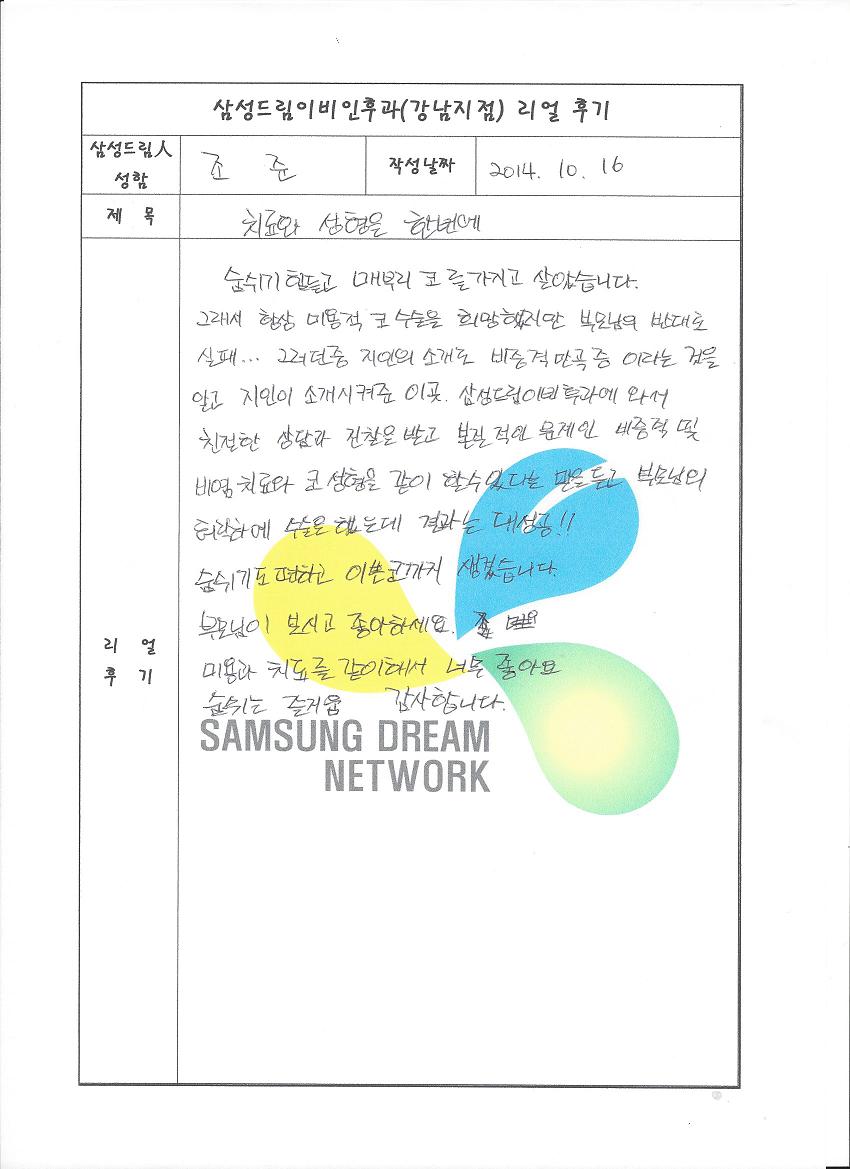 삼성드림이비인후과(강남지점) 리얼 후기
삼성드림人 성함
조 준
작성날짜
2014. 10. 16
제 목
치료와 성형을 한번에
리 얼 후 기
숨쉬기 힘들고 매부리 코를 가지고 살았습니다.
그래서 항상 미용적 코수술을 희망했지만 부모님의 반대로
실패... 그러던중 지인의 소개로 비중격만곡증 이라는 것을
알고 지인이 소개시켜준 이곳. 삼성드림이빈후과에 와서
친절한 상담과 진찰을 받고 본질적인 문제인 비중격 및
비염치료와 코성형을 같이 할수있다는 말을듣고 부모님의
허락하에 수술을 했는데 결과는 대성공!!
숨쉬기도 편하고 이쁜코까지 생겼습니다.
부모님이 보시고 좋아하세요.
미용과 치료를 같이해서 너무 좋아요
숨쉬는 즐거움 감사합니다.
SAMSUNG DREAM
NETWORK